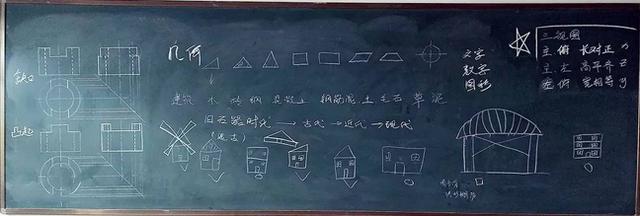 几何
文字
数字
图形
三视图
主 俯 长对正
主、左 高平齐
左 俯 宽相等
缺口
凸起
建筑 木 砖 钢 混凝土 钢筋混凝土 毛石 草 泥
旧石器时代 → 古代 → 近代 → 现代